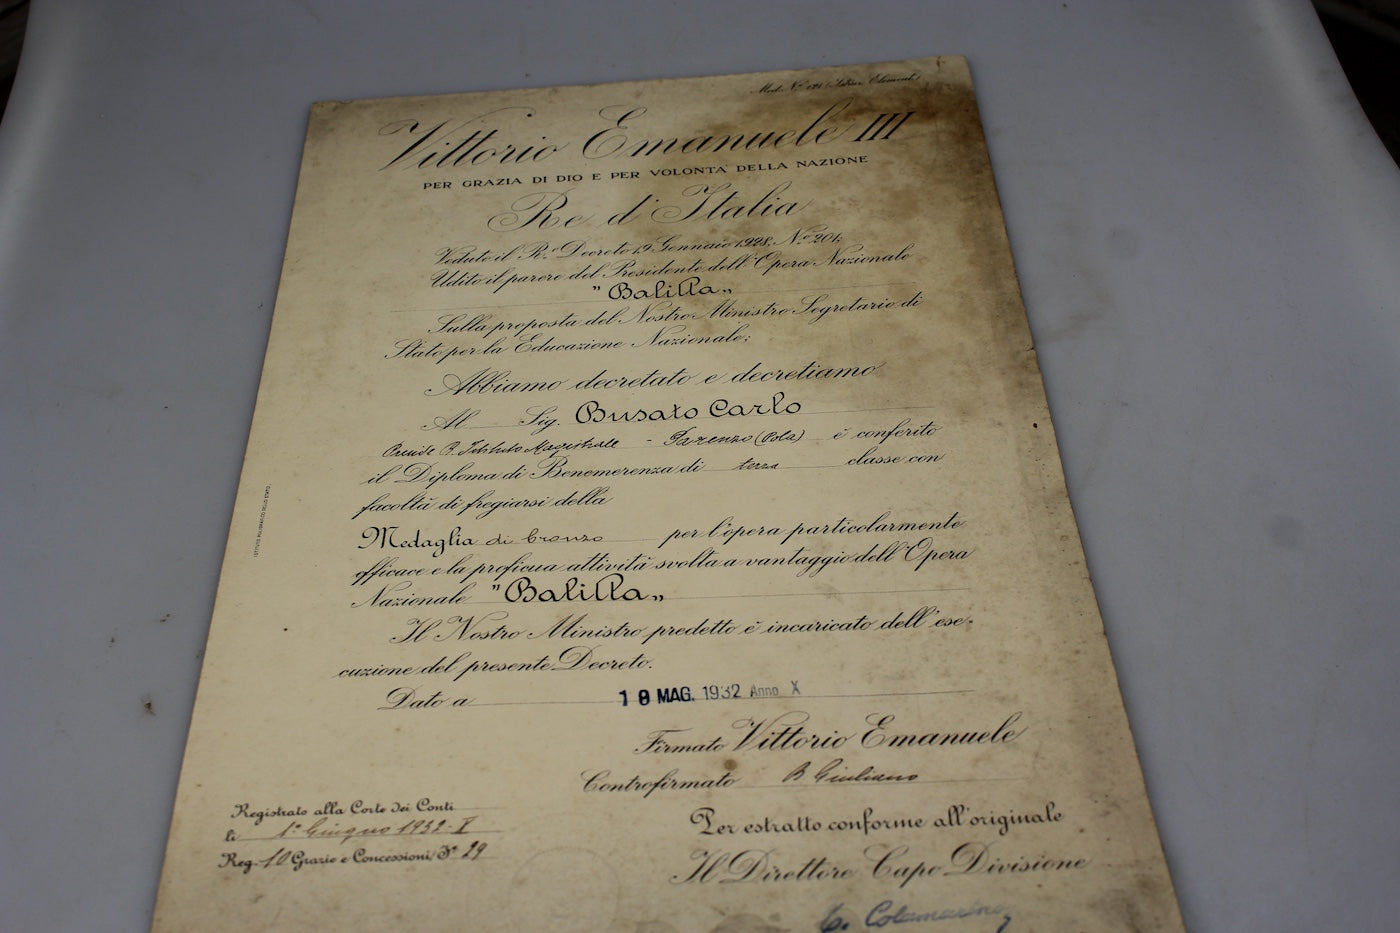 Mod. N.º 121 (Istruz. Element.)
Vittorio Emanuele III
PER GRAZIA DI DIO E PER VOLONTÀ DELLA NAZIONE
Re d'Italia
Veduto il R.º Decreto 19 Gennaio 1928, N.º 201;
Udito il parere del Presidente dell'Opera Nazionale
"Balilla"
Sulla proposta del Nostro Ministro Segretario di
Stato per la Educazione Nazionale;
Abbiamo decretato e decretiamo
Al Sig. Busato Carlo
Preside R. Istituto Magistrale - Parenzo (Pola) è conferito
il Diploma di Benemerenza di terza classe con
facoltà di fregiarsi della
Medaglia di bronzo per l'opera particolarmente
efficace e la proficua attività svolta a vantaggio dell'Opera
Nazionale "Balilla"
Il Nostro Ministro predetto è incaricato dell'ese-
cuzione del presente Decreto.
Dato a 18 MAG. 1932 Anno X
Firmato Vittorio Emanuele
Controfirmato B Giuliano
Registrato alla Corte dei Conti
li 1º Giugno 1932-X
Reg. 10 Grazie e Concessioni, Fº 29
Per estratto conforme all'originale
Il Direttore Capo Divisione
ISTITUTO POLIGRAFICO DELLO STATO